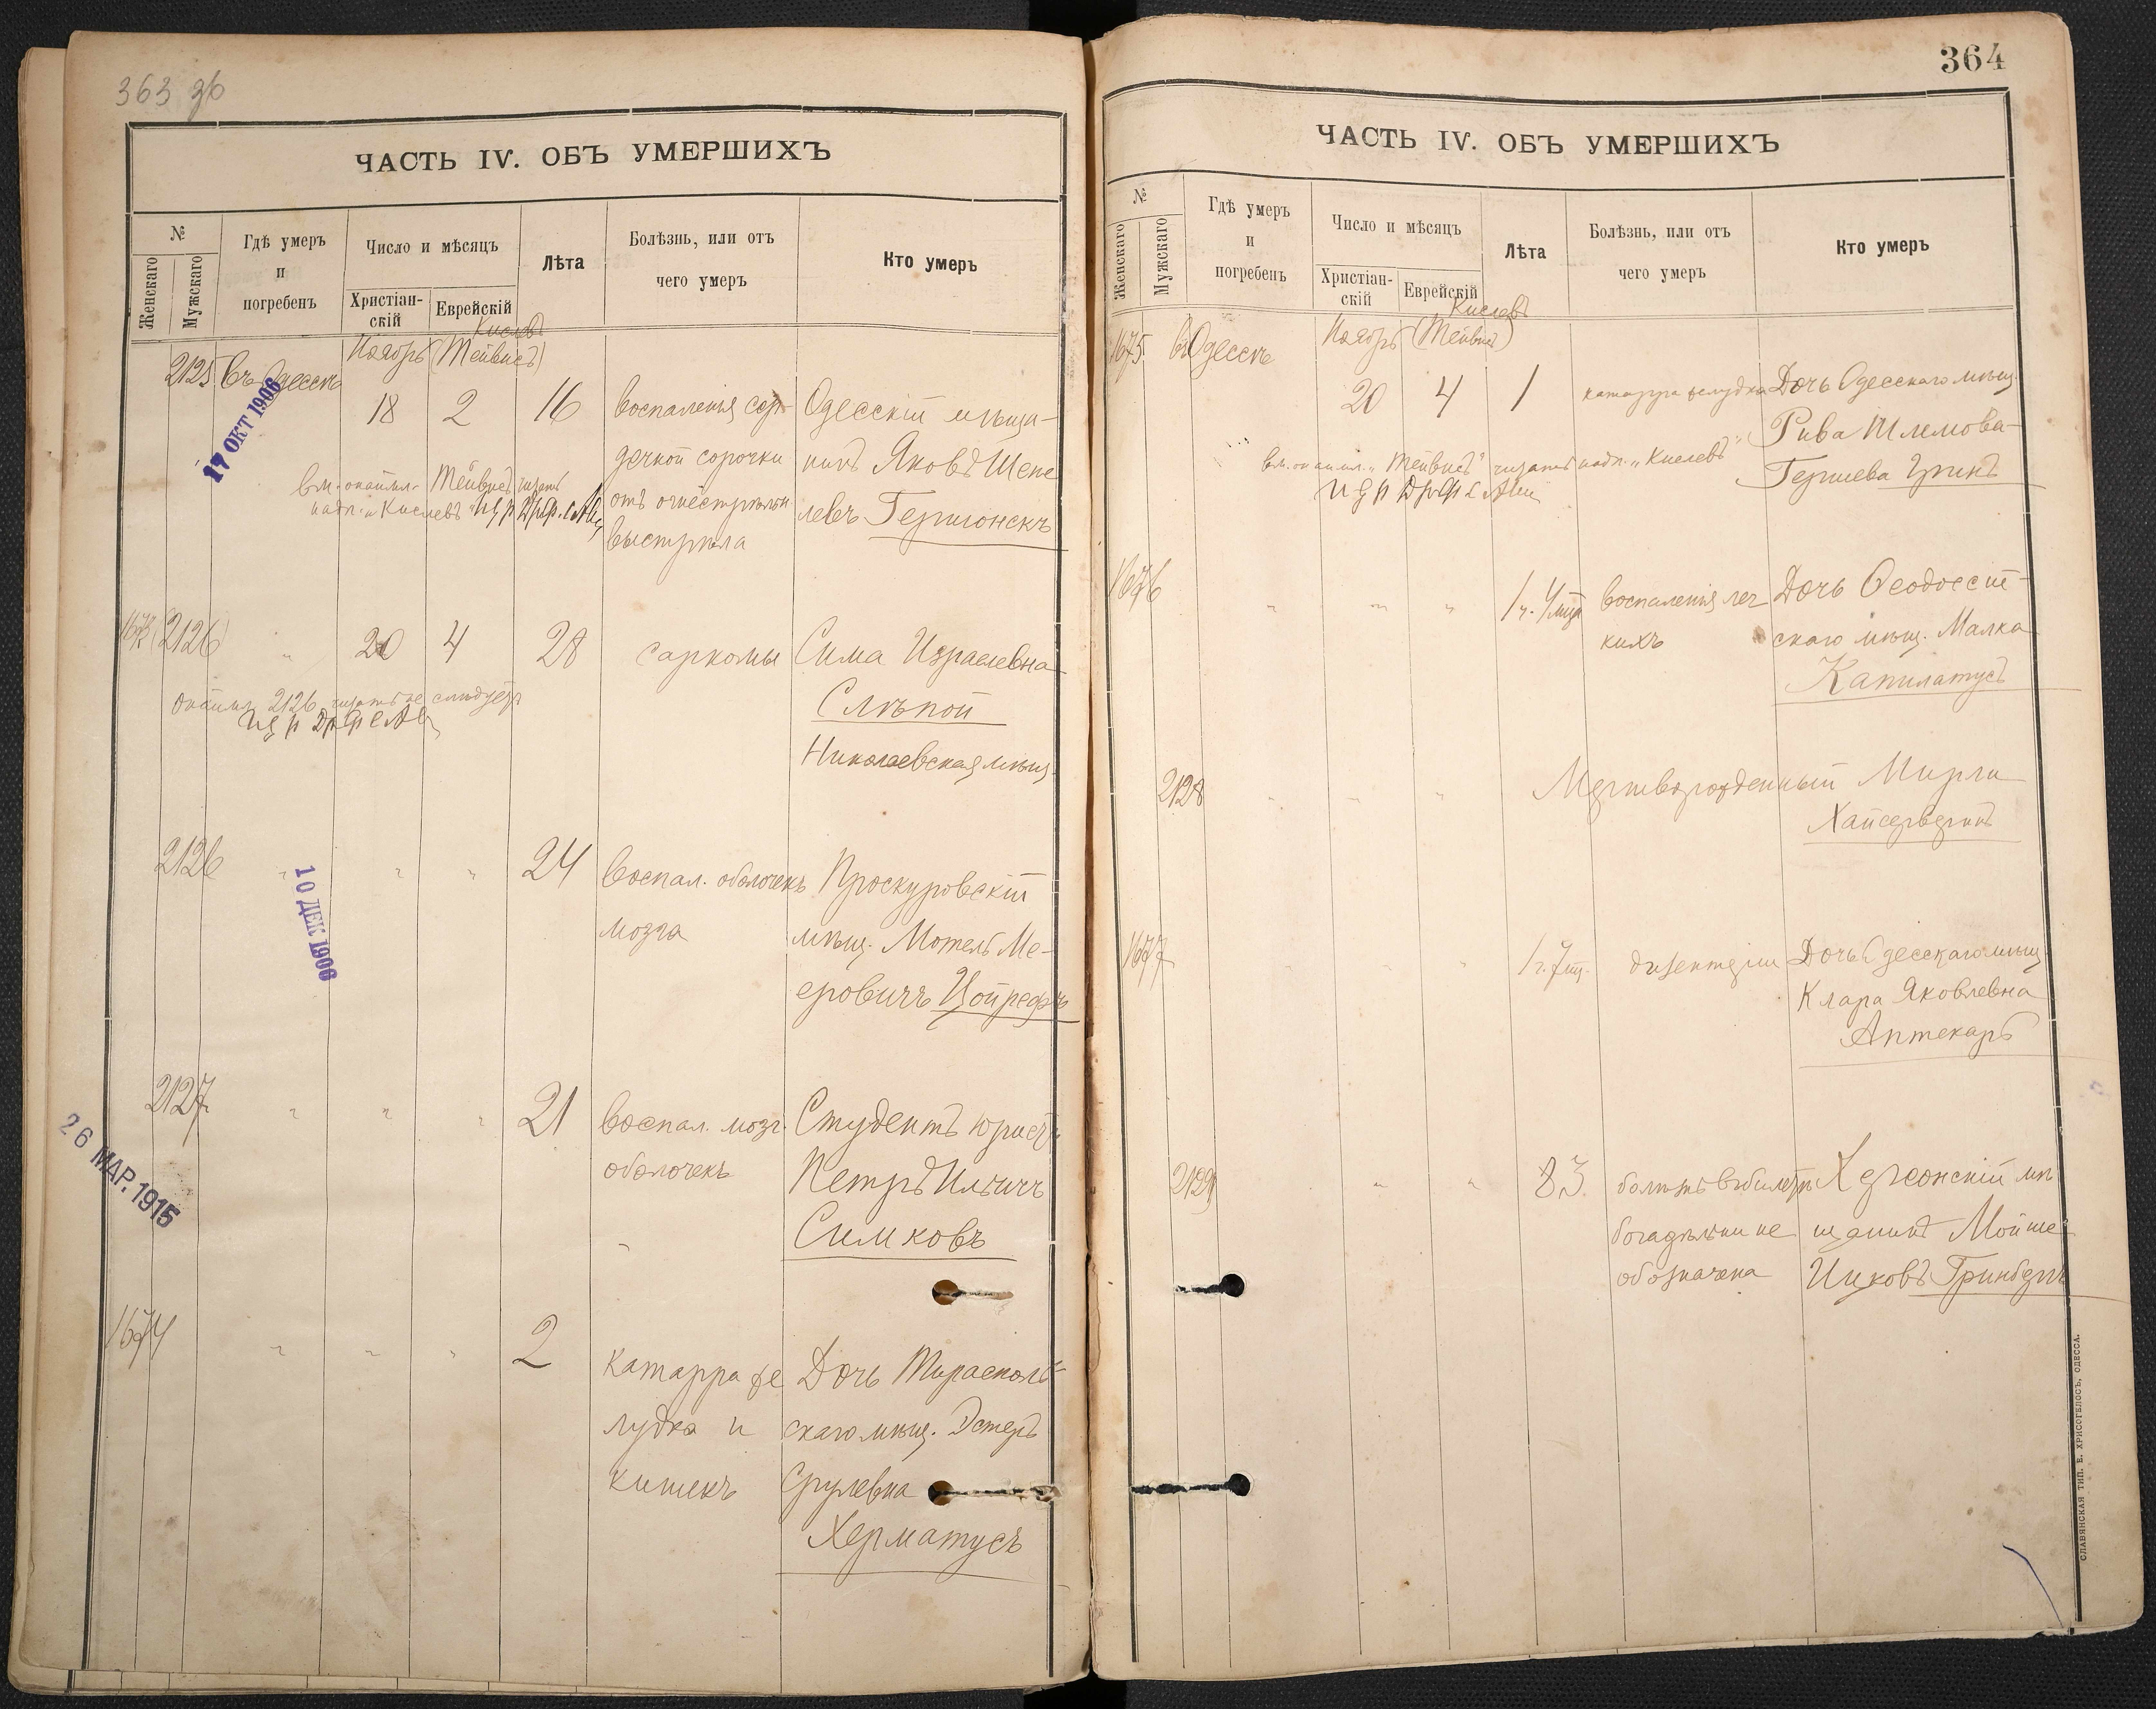 363 зв
ЧАСТЬ IV. ОБЪ УМЕРШИХЪ
№
Женскаго
Мужскаго
Гдѣ умеръ
и
погребенъ
Число и мѣсяцъ
Христіан-
скій
Еврейскій
Лѣта
Болѣзнь, или отъ
чего умеръ
Кто умеръ
Кислевъ
2125 въ Одессѣ Ноябрь (Тейвисъ)
17 ОКТ 1906
18 2 16 воспаленія сер- Одесскій мѣща-
дечной сорочки нинъ Яковъ Шепе
вм. онаимл. Тейвисъ читать
надп. Кислевъ
отъ огнестрѣльн левъ Гершонскъ
выстрѣла
1673 (2126) " 20 4 28 саркомы Сима Израелевна
онаимл. 2126 читать не слѣдуетъ
Слѣпой
Николаевская мѣщ.
2126 " " " 24 воспал. оболочекъ Проскуровскій
10 ДЕК 1909
мозга мѣщ. Мотель Ме-
еровичъ Цойрефъ
2127 " " " 21 воспал. мозг. Студентъ юристъ
26 МАР. 1915
оболочекъ Петръ Ильичъ
Симковъ
1674 " " " 2 катарра же Дочь Тирасполь-
лудка и скаго мѣщ. Эстеръ
кишекъ Срулевна
Херматусъ
364
ЧАСТЬ IV. ОБЪ УМЕРШИХЪ
№
Женскаго
Мужскаго
Гдѣ умеръ
и
погребенъ
Число и мѣсяцъ
Христіан-
скій
Еврейскій
Лѣта
Болѣзнь, или отъ
чего умеръ
Кто умеръ
Кислевъ
1675. въ Одессѣ Ноябрь (Тейвисъ)
20 4 1 катарра желудка Дочь Одесскаго мѣщ.
Рива Шлемова-
вм. онаимл. „Тейвисъ" читать надп. „Кислевъ"
Гершева Гринъ
1676 " " " 1 г. 4 мца воспаленія лег Дочь Ѳеодоссій-
кихъ скаго мѣщ. Малка
Капилатусъ
2128 " " " Мертворожденный Мирли
Хайсервегинъ
1677 " " " 1 г. 7 мц. дизентеріи Дочь Одесскаго мѣщ.
Клара Яковлевна
Аптекарь
2129 " " 83. болѣзнь въ билетѣ Херсонскій мѣ
богадѣльни не щанинъ Мойше
обозначена Ицковъ Гринбергъ
СЛАВЯНСКАЯ ТИП. Е. ХРИСОГЕЛОСЪ, ОДЕССА.